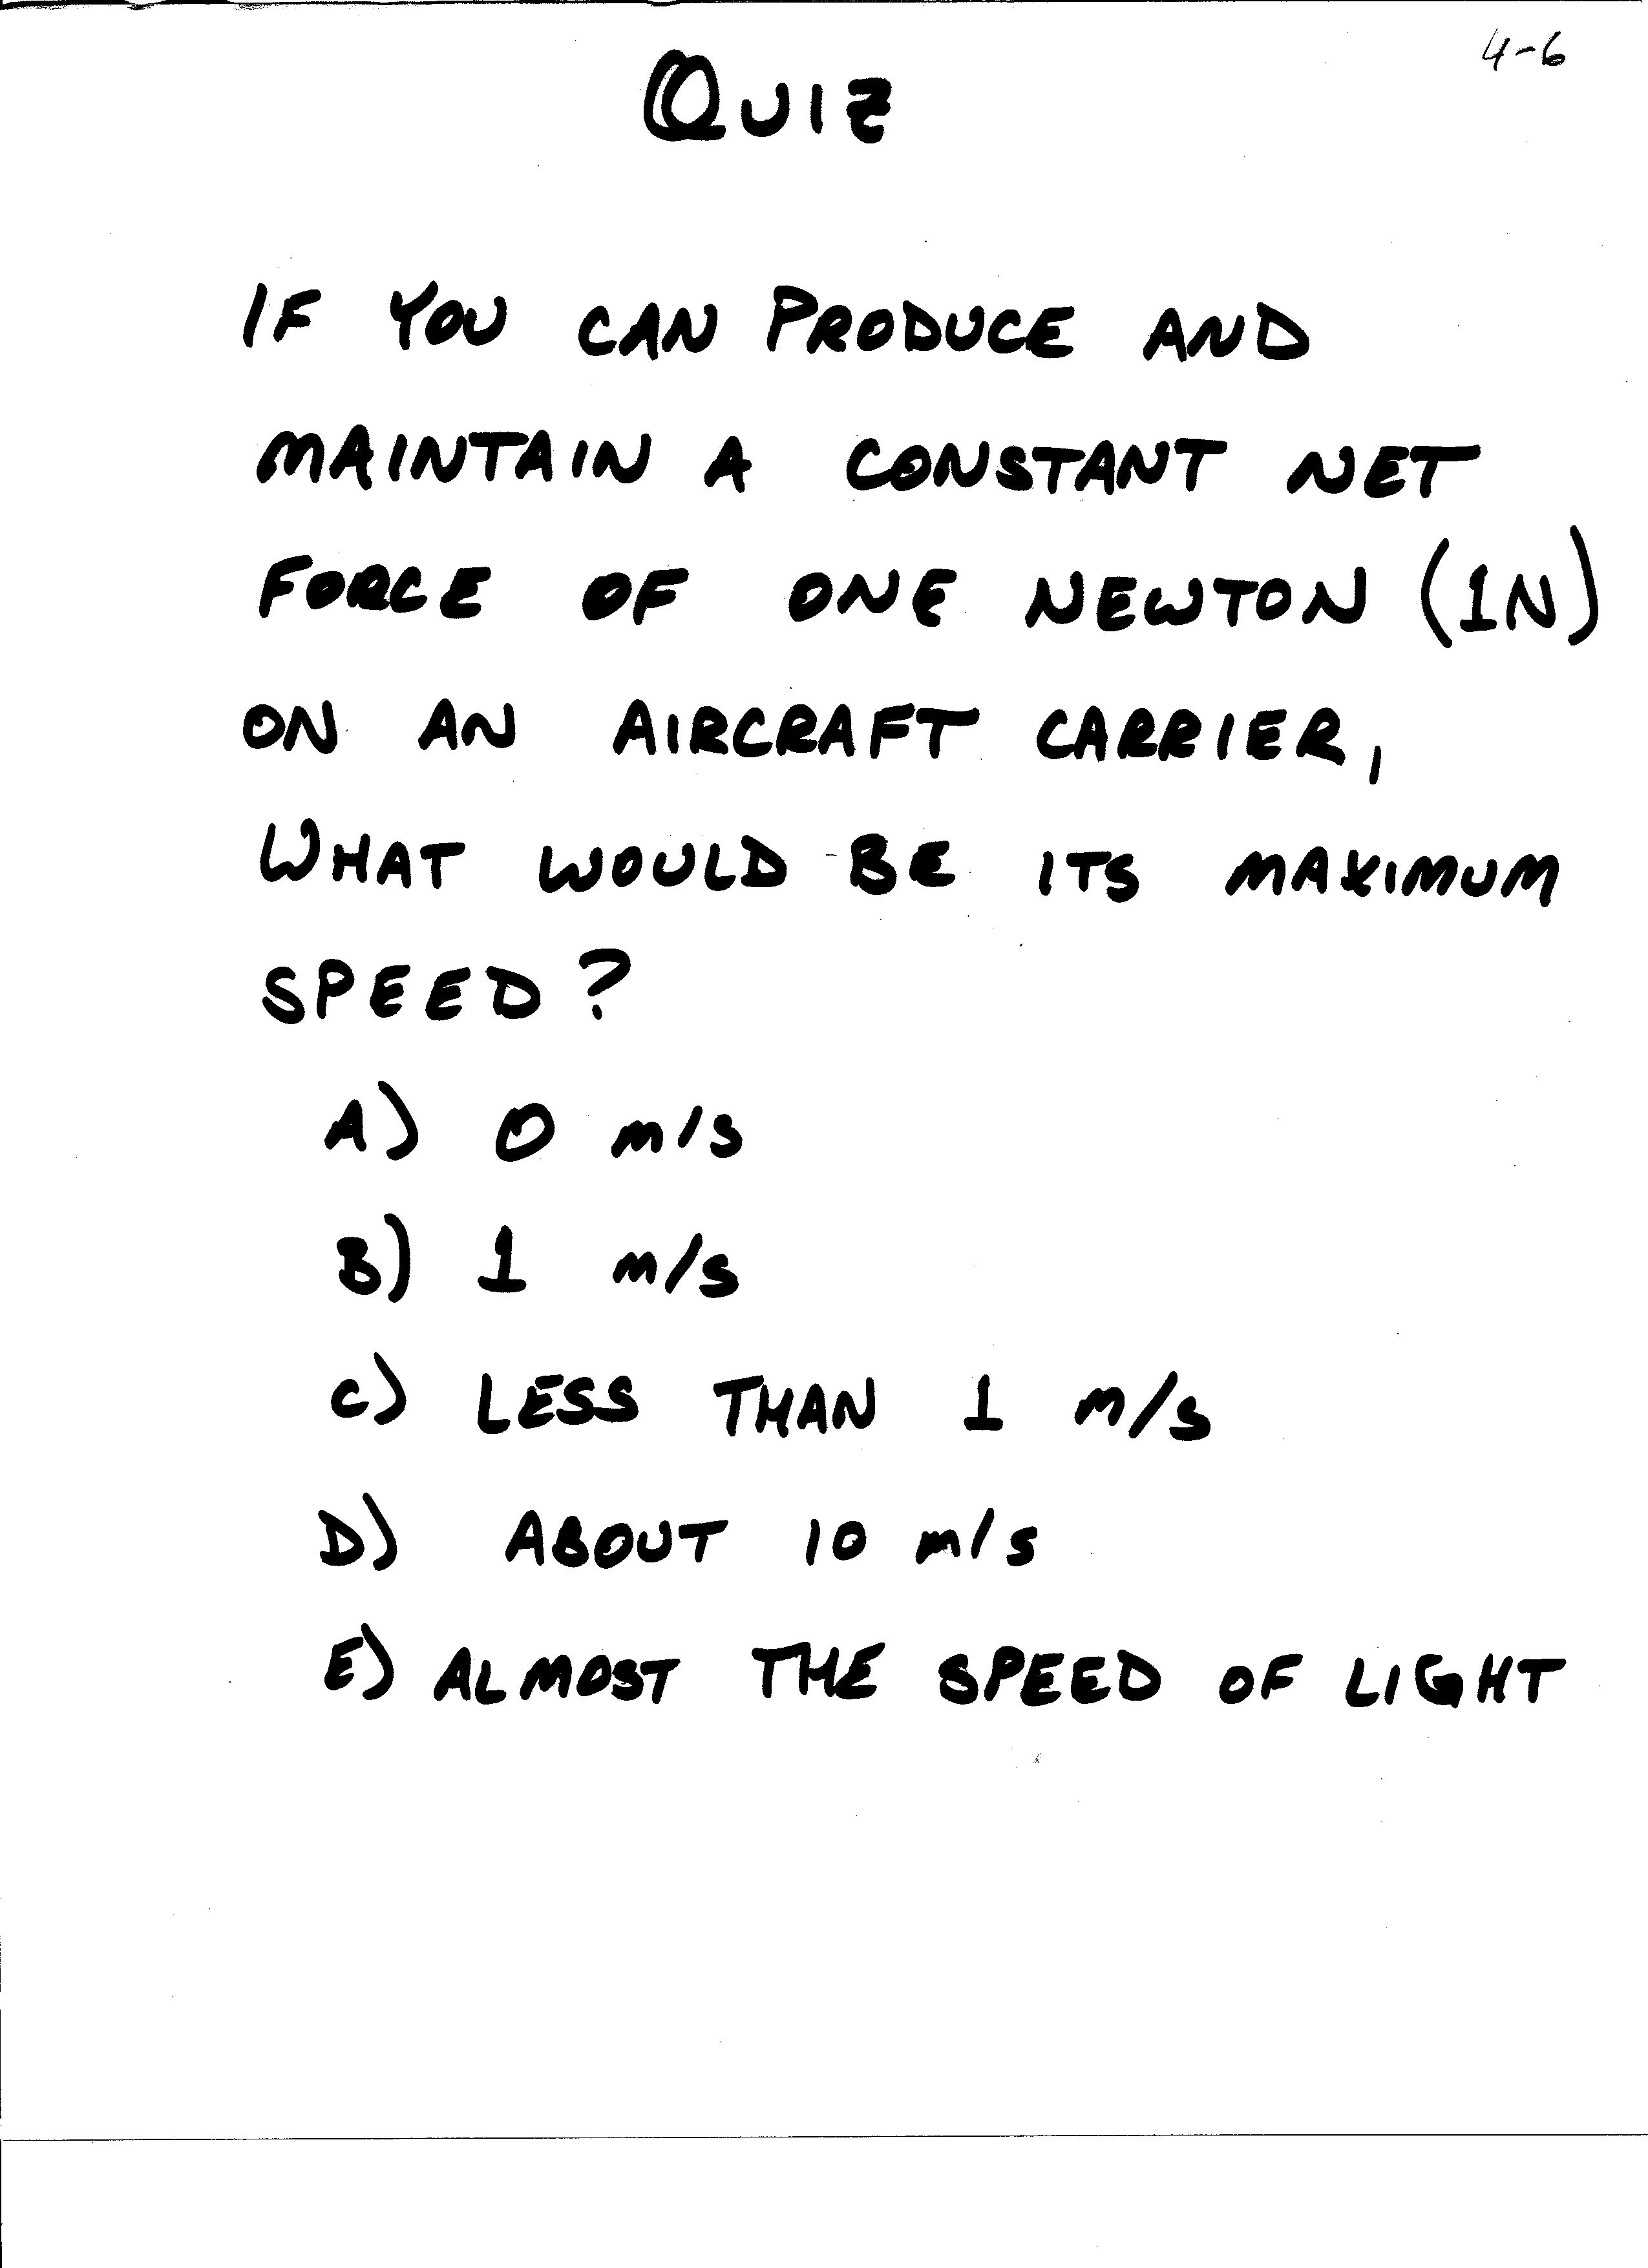 4-6
QUIZ
IF YOU CAN PRODUCE AND
MAINTAIN A CONSTANT NET
FORCE OF ONE NEWTON (1N)
ON AN AIRCRAFT CARRIER,
WHAT WOULD BE ITS MAXIMUM
SPEED?
A) 0 m/s
B) 1 m/s
C) LESS THAN 1 m/s
D) ABOUT 10 m/s
E) ALMOST THE SPEED OF LIGHT